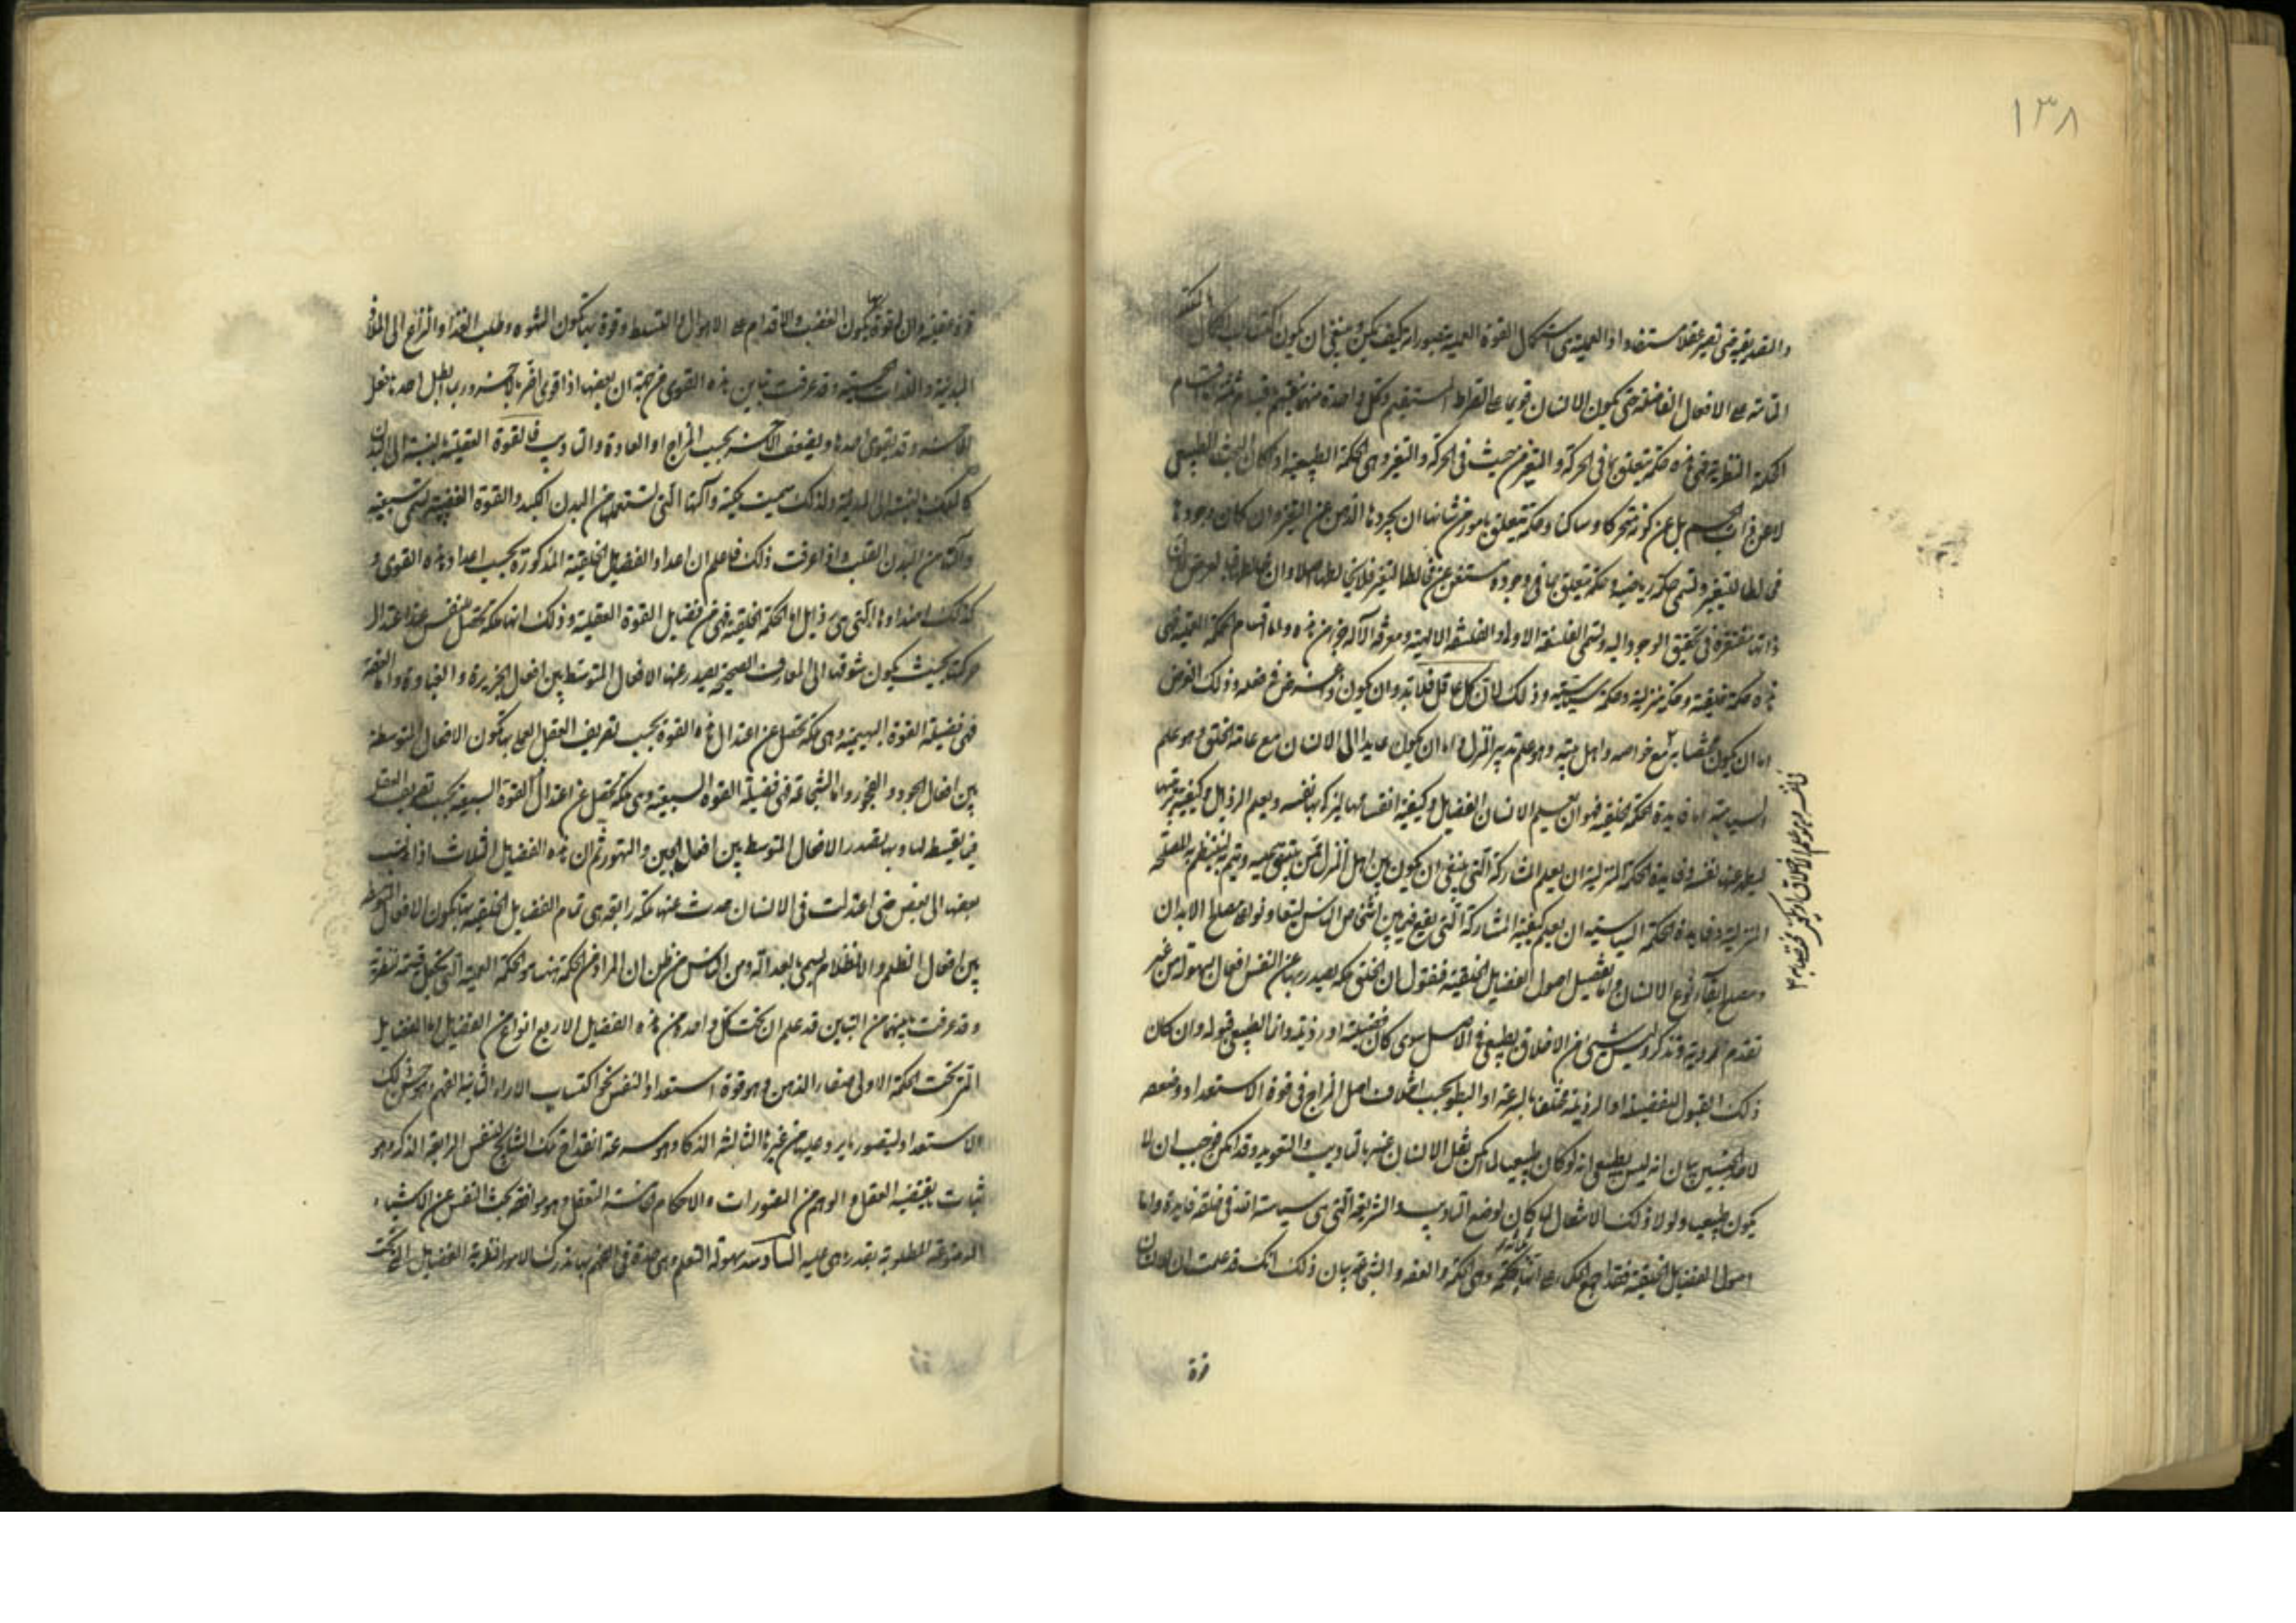 ١٣٨
والتصديقية حتى تصير عقلا مستفادا والعملية هي استكمال القوة العملية بتصور انه كيف يمكن وينبغي ان يكون اكتساب الملكة
التامة على الافعال الفاضلة حتى يكون الانسان قويما على الصراط المستقيم وكل واحدة منهما تنقسم اقسام ثلثة اقسام
الحكمة النظرية فهي هذه حكمة تتعلق بما في الحركة والتغير من حيث في الحركة والتغير وهي الحكمة الطبيعية اذ كان البحث الطبيعي
لا عن ذات الجسم بل عن كونه متحركا وساكنا وحكمة تتعلق بامور من شانها ان يجردها الذهن عن التغير وان كان وجودها
مخالطا للتغير وتسمى حكمة رياضية وحكمة تتعلق بما في وجوده مستغن عن مخالطة التغير فلا يخالطها اصلا وان خالطها فبالعرض لا ان
ذاتها مفتقرة في تحقيق الوجود اليه وتسمى الفلسفة الاولى والفلسفة الالهية ومعرفة الاله جزء من هذه واما اقسام الحكمة العملية فهي
هذه حكمة خلقية وحكمة منزلية وحكمة سياسية وذلك لان كل عاقل فلا بد وان يكون غرض في فعله وذلك الغرض
اما ان يكون مختصا به مع خواصه واهل بيته وهو علم تدبير المنزل واما ان يكون عايدا الى الانسان مع عامة الخلق وهو علم
السياسة اما فايدة الحكمة الخلقية فهو ان يعلم الانسان الفضايل وكيفية اقتسامها ليزكي بها نفسه ويعلم الرذايل وكيفية توقيها
ليطهر عنها نفسه وفايدة الحكمة المنزلية ان يعلم المشاركة التي ينبغي ان يكون بين اهل المنزل لتنتظم به المصلحة
المنزلية وفايدة الحكمة السياسية ان يعلم كيفية المشاركة التي يقع فيما بين اشخاص الناس ليتعاونوا على مصالح الابدان
ومصالح بقاء نوع الانسان واما تفصيل اصول الفضايل الخلقية فنقول ان الخلق ملكة يصدر بها عن النفس افعال بسهولة من غير
تقدم الروية وتذكر وليس شيء من الاخلاق بطبيعي في الاصل سوى كان فضيلة او رذيلة وانما الطبيعي قبوله وان كان
ذلك القبول للفضيلة او الرذيلة مختلفا بالسرعة او البطو بحسب اختلاف اصل المزاج في قوة الاستعداد وضعفه
لاحد الجنسين بيان انه ليس بطبيعي انه لو كان طبيعيا لما امكن نقل الانسان عنه بالتاديب والتعويد وقد امكن فوجب ان لا
يكون طبيعيا ولولا ذلك الانتقال لما كان لوضع التاديب والشريعة التي هي سياسة الله في خلقه فايدة واما
اصول الفضايل الخلقية فقد اجمع الحكماء على انها ثلثة الحكمة وهي الحكمة والعفة والشجاعة بيان ذلك انك قد علمت ان للانسان
قوة
فالنفس وهو علم الاخلاق
قوة عقلية وان له قوة بها يكون الغضب والاقدام على الاهوال والتسلط وقوة بها يكون الشهوة وطلب الغذاء والنزاع الى الملاذ
البدنية واللذات الحسية وقد عرفت تباين هذه القوى من جهة ان بعضها اذا قوى اضر بالاخر وربما ابطل احدها فعل
الاخر وقد يقوى احدها ويضعف الاخر بحسب المزاج او العادة والتاديب فالقوة العقلية بالنسبة الى البدن
كالملك بالنسبة الى المدينة ولذلك سميت ملكية وآلتها التي تستعملها من البدن الكبد والقوة الغضبية تسمى سبعية
وآلتها من البدن القلب واذا عرفت ذلك فاعلم ان اعداد الفضايل الخلقية المذكورة بحسب اعداد هذه القوى و
كذلك اضدادها التي هي رذايل اما الحكمة الخلقية فهي من فضايل القوة العقلية وذلك انها ملكة تحصل للنفس عند اعتدال
حركتها بحيث يكون شوقها الى المعارف الصحيحة يصدر عنها الافعال المتوسط بين افعال الجربزة والغباوة واما العفة
فهي فضيلة القوة البهيمية وهي ملكة تحصل عن اعتدال هذه القوة بحسب تصريف العقل العملي بها تكون الافعال المتوسطة
بين افعال الجمود والفجور واما الشجاعة فهي فضيلة القوة السبعية وهي ملكة تحصل عن اعتدال القوة السبعية بحسب تصريف العقل
فيما يقسط لها وبها يصدر الافعال المتوسط بين افعال الجبن والتهور ثم ان هذه الفضايل الثلاث اذا انتسب
بعضها الى بعض حتى اعتدلت في الانسان حدث عنها ملكة رابعة هي تمام الفضايل الخلقية بها يكون الافعال المتوسطة
بين افعال الظلم والانظلام يسمى بالعدالة ومن الناس من ظن ان المراد من الحكمة ههنا هو الحكمة العملية التي تجعل قسيمة للنظرية
وقد عرفت ما بينهما من التباين قد علم ان تحت كل واحدة من هذه الفضايل الاربع انواع من الفضايل اما الفضايل
التي تحت الحكمة الاولى صفاء الذهن وهو قوة استعداد النفس نحو اكتساب الاراء الثانية الفهم وهو حسن ذلك
الاستعداد لتصور ما يرد عليها من غيرها الثالثة الذكاء وهو سرعة انقداح تلك النتايج للنفس الرابعة الذكر وهو
ثبات ما يقتضيه العقل والوهم من التصورات والاحكام الخامسة التعقل وهو موافقة بحث النفس عن الاشياء
الموضوعة المطلوبة بقدر ما هي عليه السادسة سهولة التعلم وهي حدة في الفهم بها يدرك الامور النظرية الفضايل التي تحت